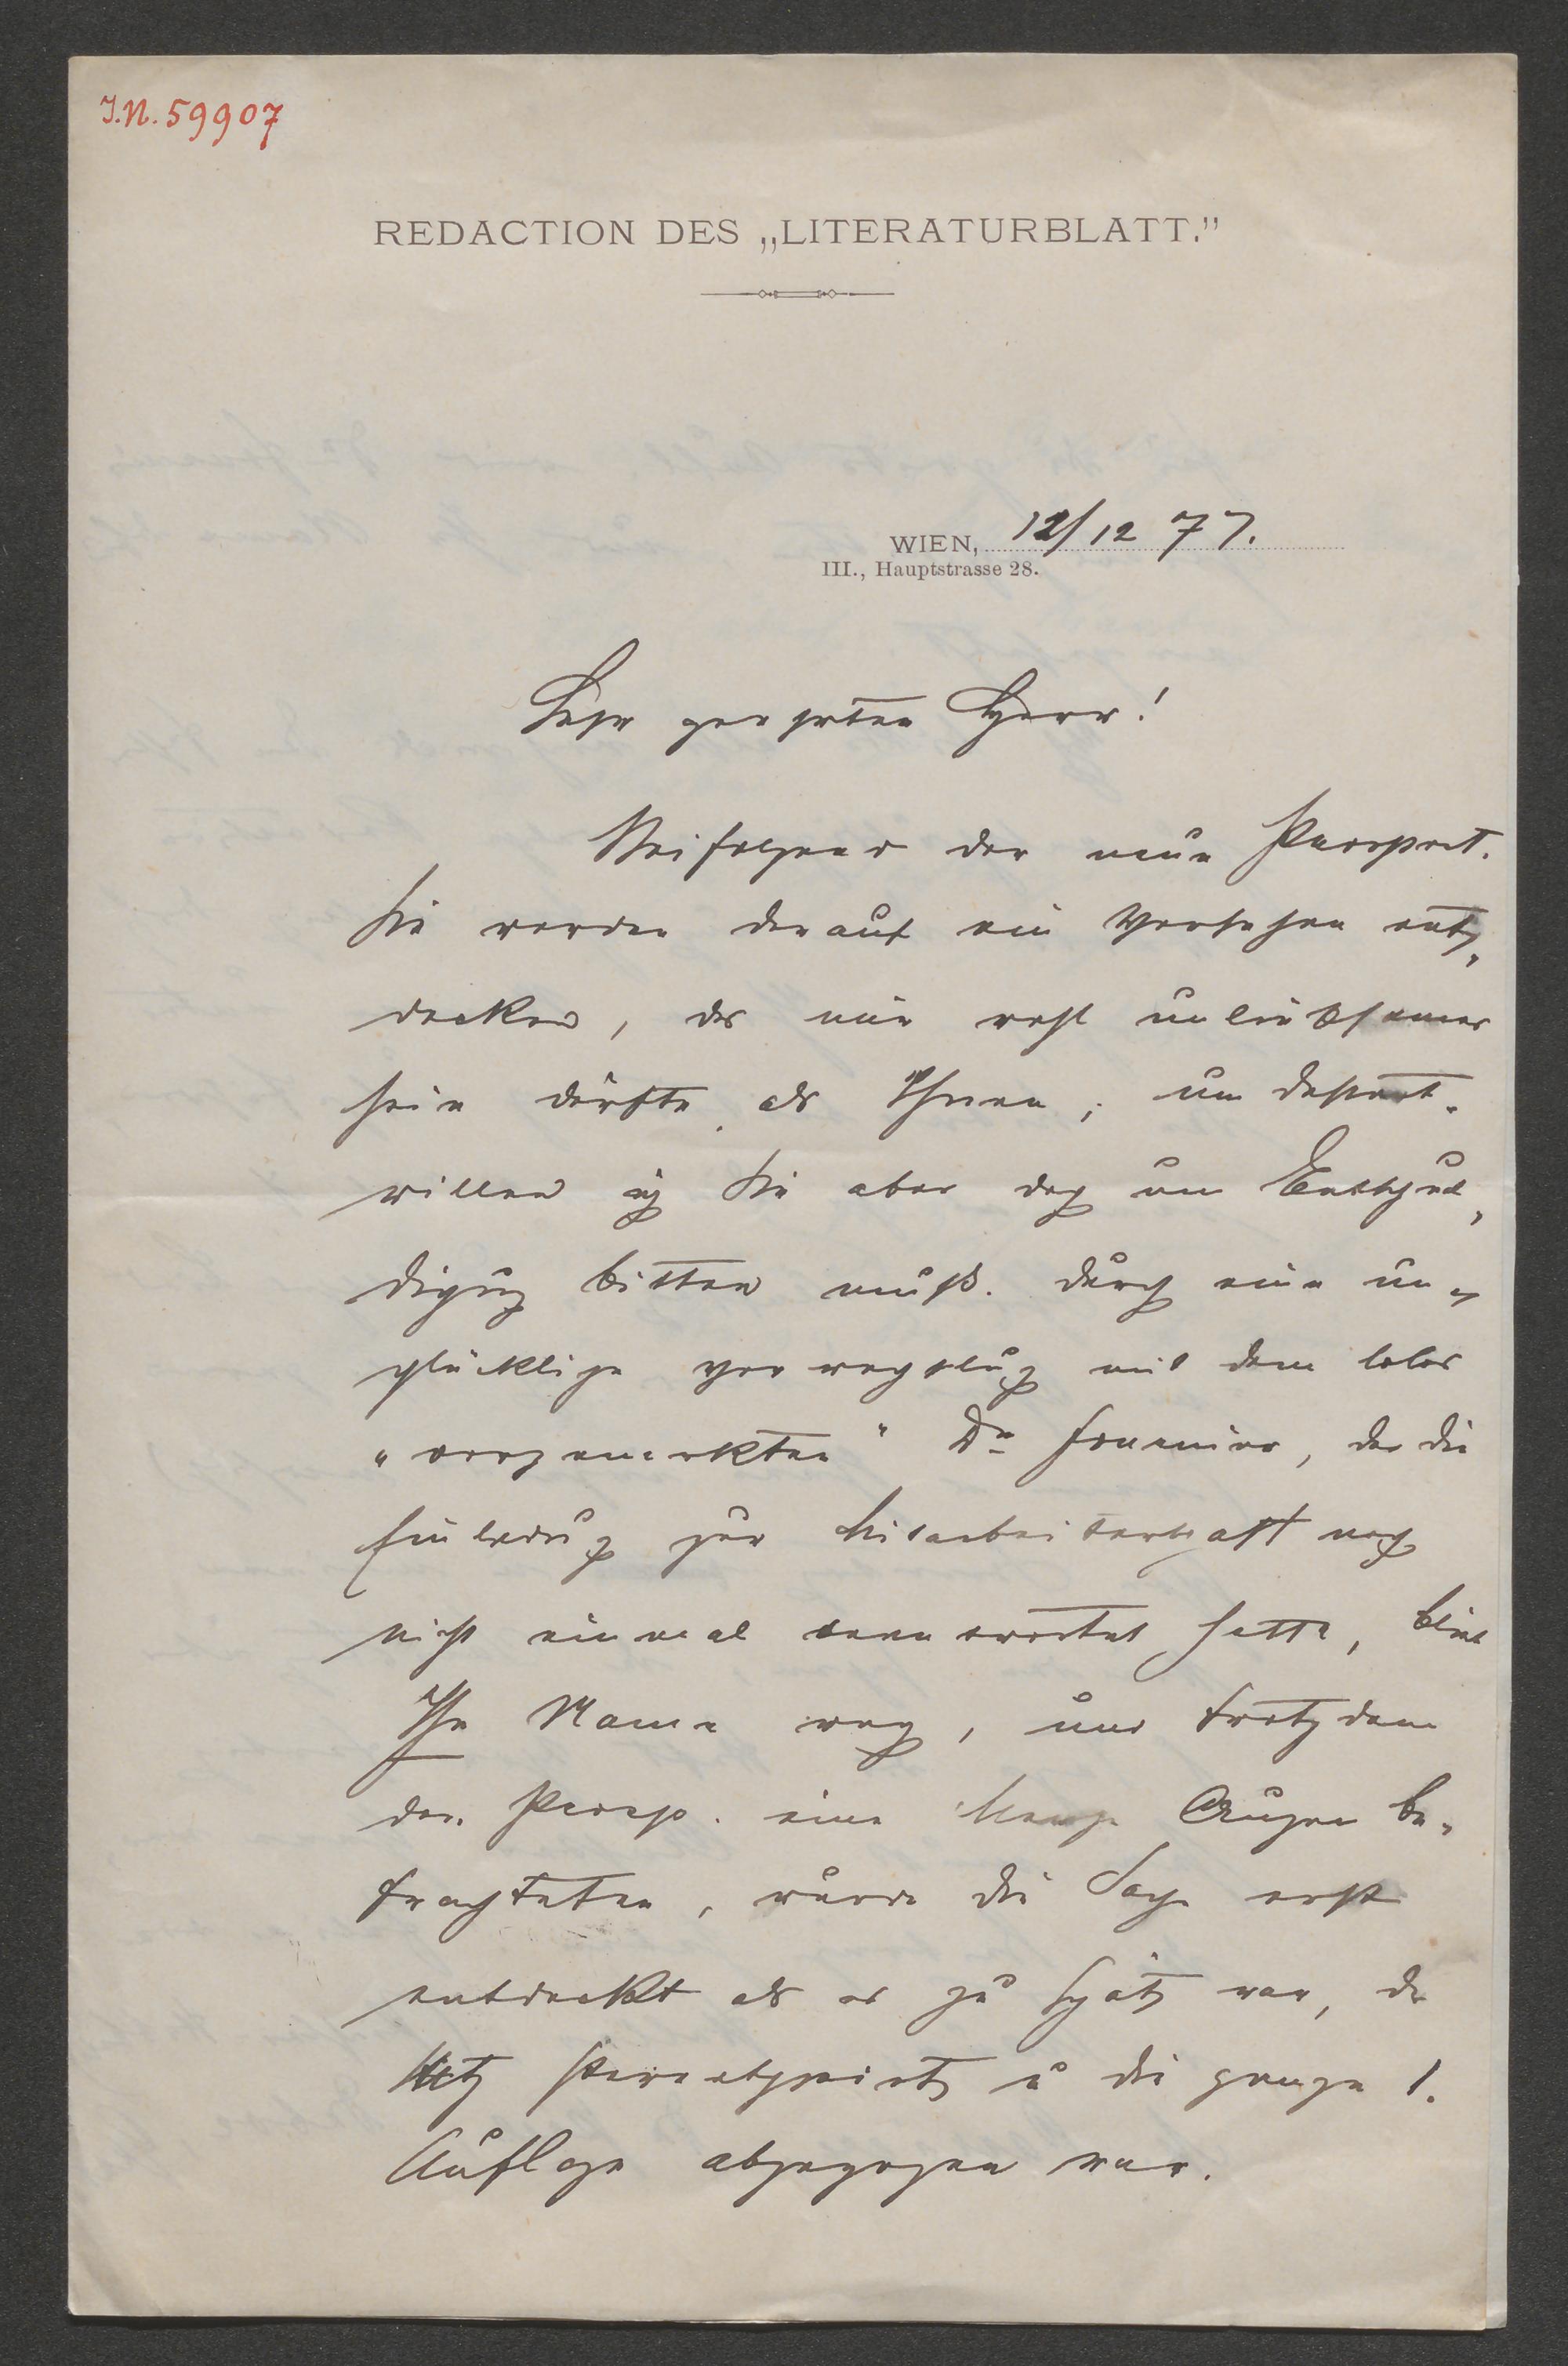 I.N. 59907
REDACTION DES „LITERATURBLATT."
WIEN, 12/12 77.
III., Hauptstrasse 28.
Sehr geehrter Herr!
Beifolgend der neue Prospect.
Sie werden darauf ein Versehen ent-
decken, das mir wohl unliebsamer
sein dürfte als Ihnen, um dessent-
willen ich Sie aber doch um Entschul-
digung bitten muß. Durch eine un-
glückliche Verwechslung mit dem
"vorgemerkten" Dr Fournier, der die
Einladung zur Mitarbeiterschaft noch
nicht einmal beantwortet hatte, blieb
Ihr Name weg, und trotzdem
den Prosp. eine Menge Augen be-
trachteten, wurde die Sache erst
entdeckt als es zu spät war, der
Satz u die ganze 1.
Auflage abgezogen war.